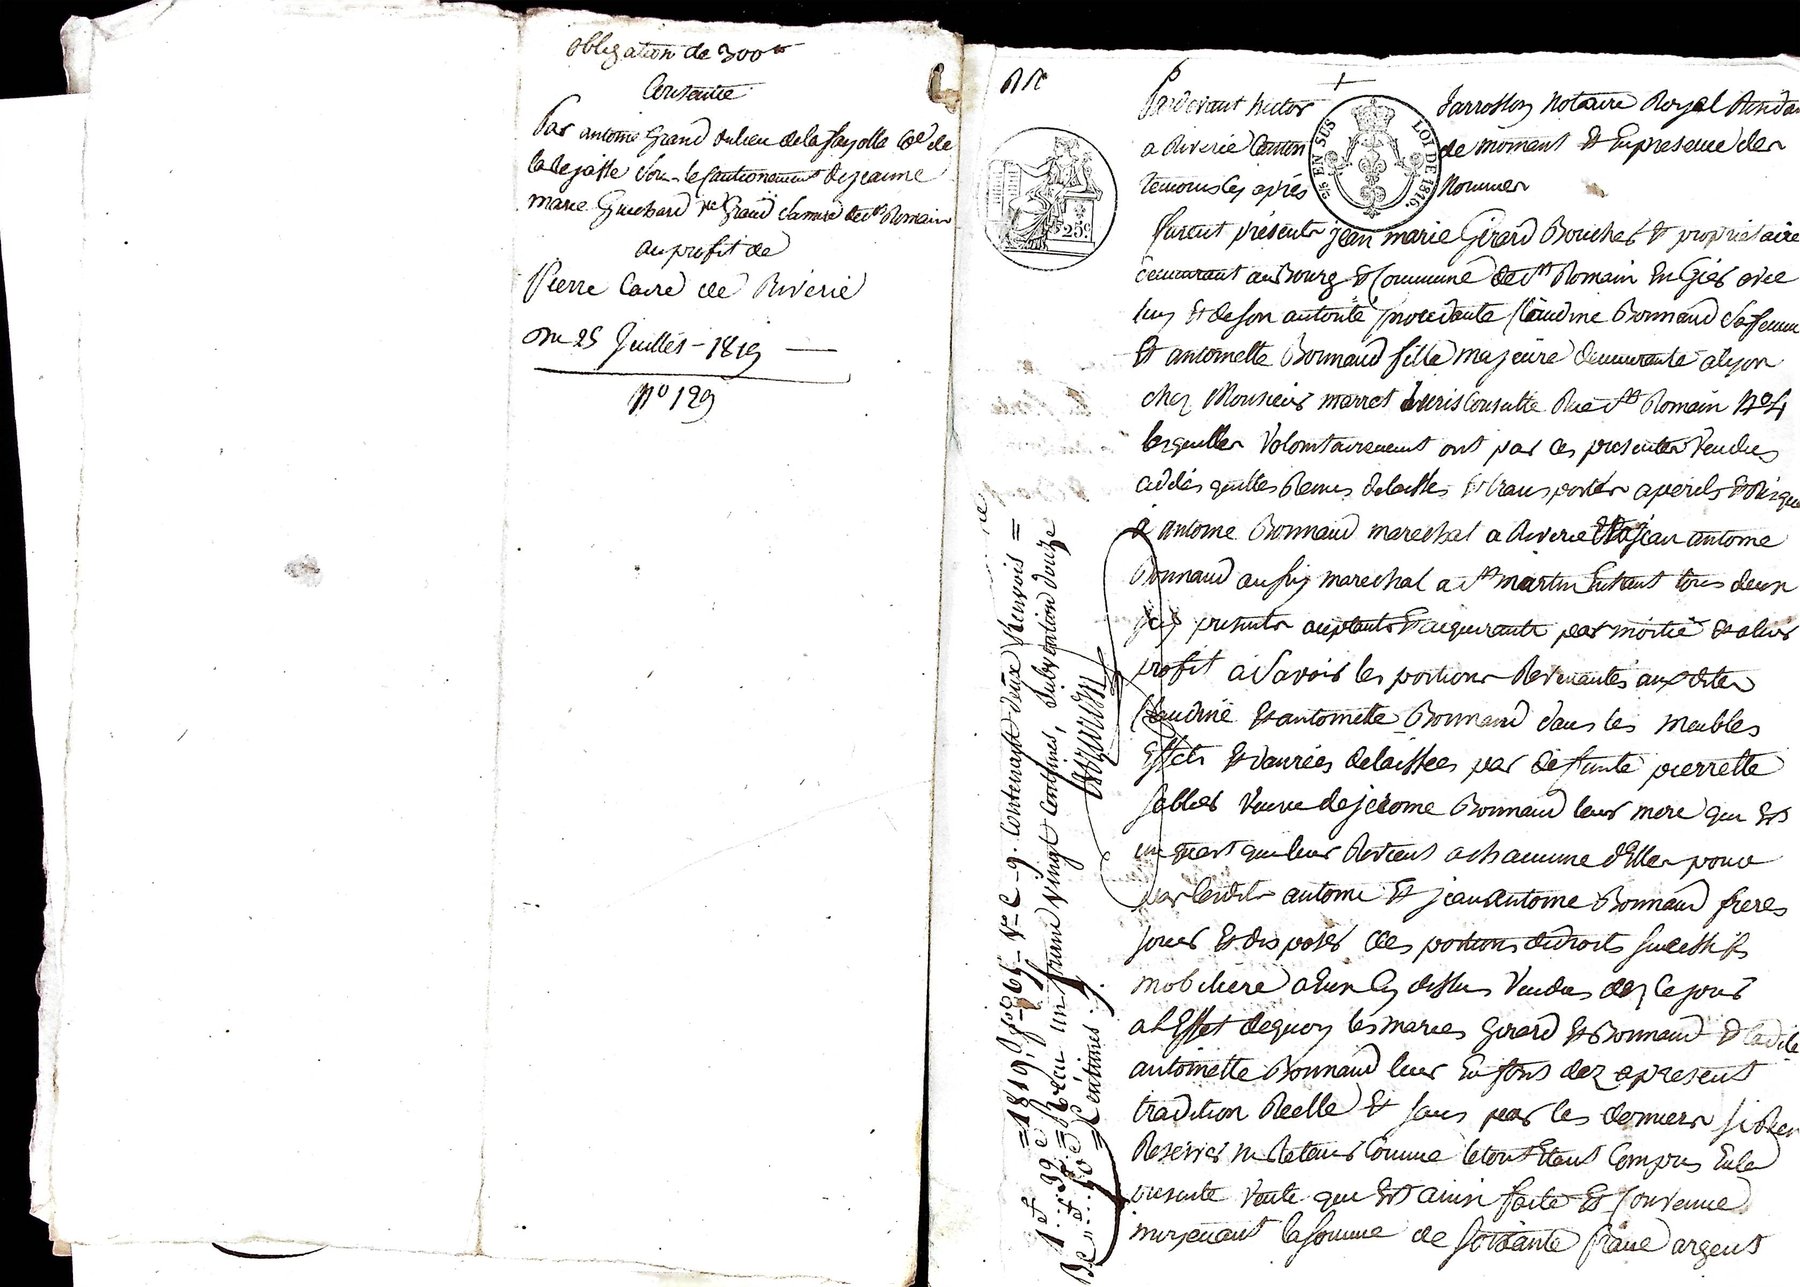 obligation de 300 tt
Consentie
Par antoine Grand du lieu de la fayolle
marie Guichard Ve Grand de St Romain
au profit de
Pierre Caire de Riverie
Du 25 Juillet - 1819
No 129
Pardevant hector Jarrosson Notaire Royal
a Riverie Canton de mornant Et En presence des
temoins Cy après Nommes
25 EN SUS
LOI DE 1816.
25c
furent présents jean marie Girard Boucher Et propriétaire
demeurant au Bourg Et Commune de St Romain En Giés avec
luy Et de son autorité procedante Claudine Bonnand sa femme
Et antoinette Bonnand fille majeure demeurante a lyon
chez Monsieur marret Jurisconsulte Rue St Romain No 4
lesquelles Volontairement ont par ces presentes Vendus
cédés quittés Remis delaissés Et transportés a perils Et Risques
à antoine Bonnand marechal a Riverie Et a jean antoine
Bonnand aussy marechal a St martin En haut tous deux
icy presents acceptants Et acquerants par moitié Et a leur
profit a Savoir les portions Revenantes aux dites
Claudine Et antoinette Bonnand dans les meubles
Effets Et danrées delaissées par defunte pierrette
veuve de jerome Bonnand leur mere qui Est
un quart qui leur Revient a chacune d'Elles pour
par lesdits antoine Et jean antoine Bonnand freres
jouir Et disposer des portions de droits successifs
mobiliers a Eux Cy dessus Vendus dez Ce jour
a l'Effet de quoy les maries Girard Et Bonnand Et ladite
antoinette Bonnand leur En font dez a present
tradition Reelle Et sans par les derniers
Reserves ni Retenir Comme le tout Etant Compris En la
presente Vente qui Est ainsi faite Et Convenue
moyenant la somme de soixante francs argent
1819
contenant deux Renvois =
Reçu un franc vingt centimes, subvention douze
centimes.